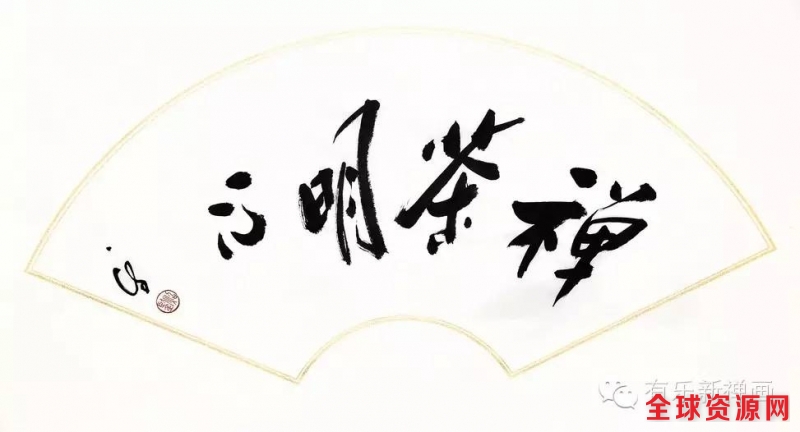 禅茶明心
有乐新禅画
全球资源网